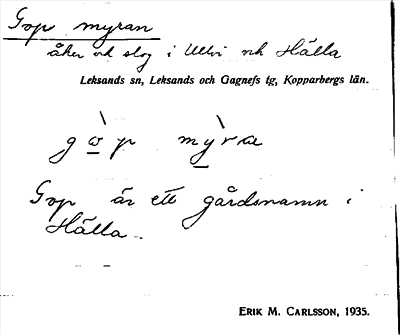 Gopmyran
åker och slog i Ullvi och Hälla
Leksands sn, Leksands och Gagnefs tg, Kopparbergs län.
gòp mỳra
Gop är ett gårdsnamn i
Hälla.
ERIK M. CARLSSON, 1935.